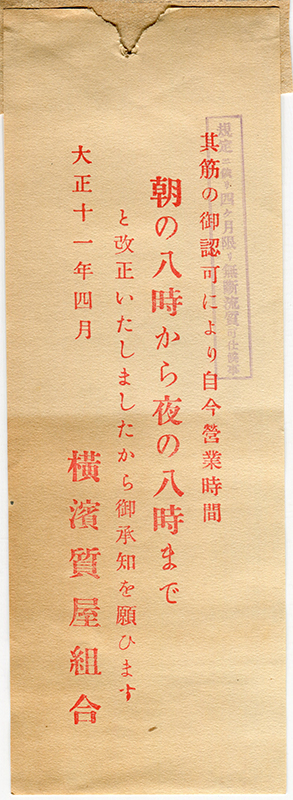 規定ニ依リ四ケ月限リ無断流質可仕候事
其筋の御認可により自今營業時間
朝の八時から夜の八時まで
と改正いたしましたから御承知を願ひます
大正十一年四月
橫濱質屋組合